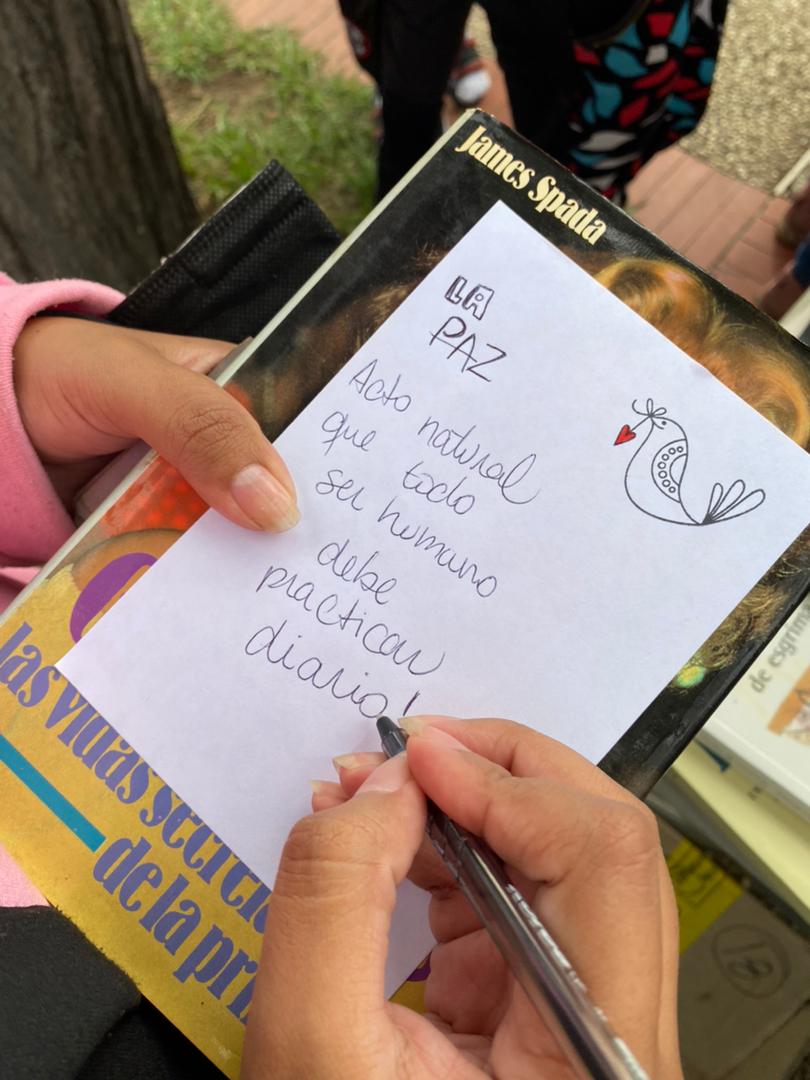 James Spada
LA
PAZ
Acto natural
que todo
ser humano
debe
practicar
diario!
las vidas secretas
de la pri
de esgri
18